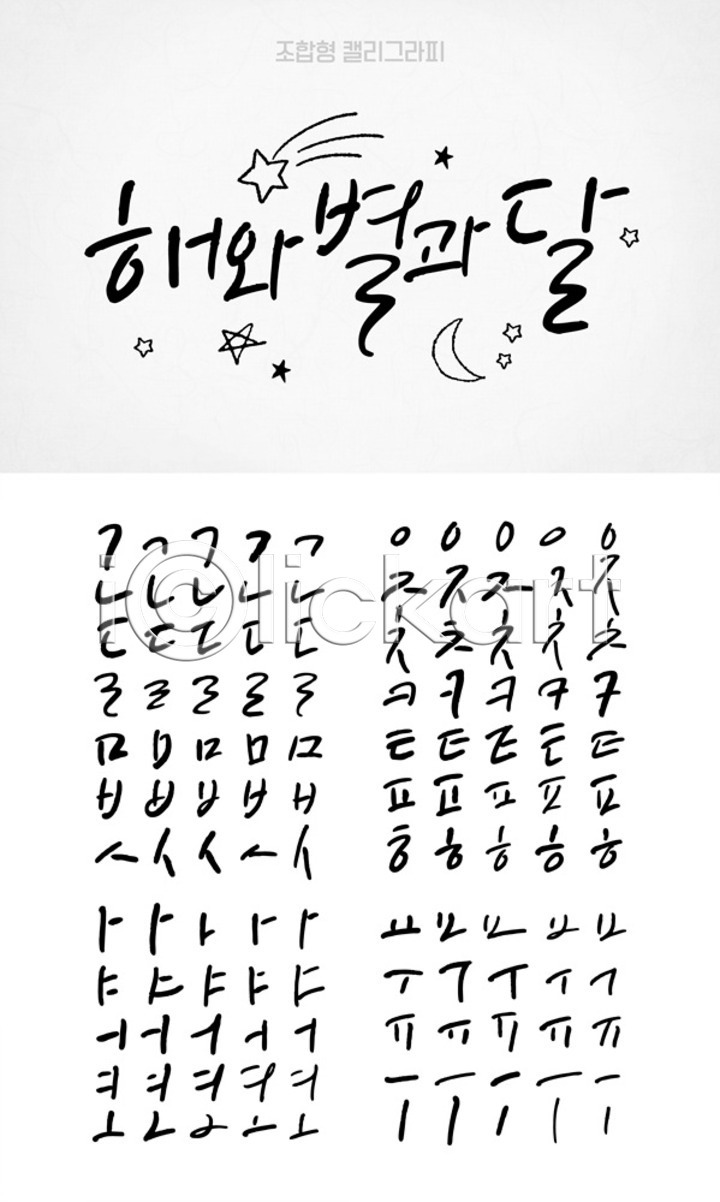 조합형 캘리그라피
해와 별과 달
ㄱ ㄱ ㄱ ㄱ ㄱ
ㄴ ㄴ ㄴ ㄴ ㄴ
ㄷ ㄷ ㄷ ㄷ ㄷ
ㄹ ㄹ ㄹ ㄹ ㄹ
ㅁ ㅁ ㅁ ㅁ ㅁ
ㅂ ㅂ ㅂ ㅂ ㅂ
ㅅ ㅅ ㅅ ㅅ ㅅ
ㅇ ㅇ ㅇ ㅇ ㅇ
ㅈ ㅈ ㅈ ㅈ ㅈ
ㅊ ㅊ ㅊ ㅊ ㅊ
ㅋ ㅋ ㅋ ㅋ ㅋ
ㅌ ㅌ ㅌ ㅌ ㅌ
ㅍ ㅍ ㅍ ㅍ ㅍ
ㅎ ㅎ ㅎ ㅎ ㅎ
ㅏ ㅏ ㅏ ㅏ ㅏ
ㅑ ㅑ ㅑ ㅑ ㅑ
ㅓ ㅓ ㅓ ㅓ ㅓ
ㅕ ㅕ ㅕ ㅕ ㅕ
ㅗ ㅗ ㅗ ㅗ ㅗ
ㅛ ㅛ ㅛ ㅛ ㅛ
ㅜ ㅜ ㅜ ㅜ ㅜ
ㅠ ㅠ ㅠ ㅠ ㅠ
ㅡ ㅡ ㅡ ㅡ ㅡ
ㅣ ㅣ ㅣ ㅣ ㅣ
iclickart